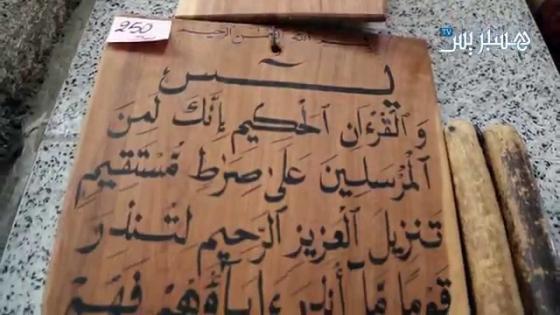 هسبريس TV
250
بسم الله الرحمن الرحيم
يـسٓ
وَالْقُرْءَانِ اَلْحَكِيمِ إِنَّكَ لَمِنَ
اَلْمُرْسَلِينَ عَلَىٰ صِرَٰطٍ مُّسْتَقِيمٍ
تَنزِيلُ اَلْعَزِيزِ اِلرَّحِيمِ لِتُنذِرَ
قَوْماً مَّا أُنذِرَ ءَابَاؤُهُمْ فَهُمْ